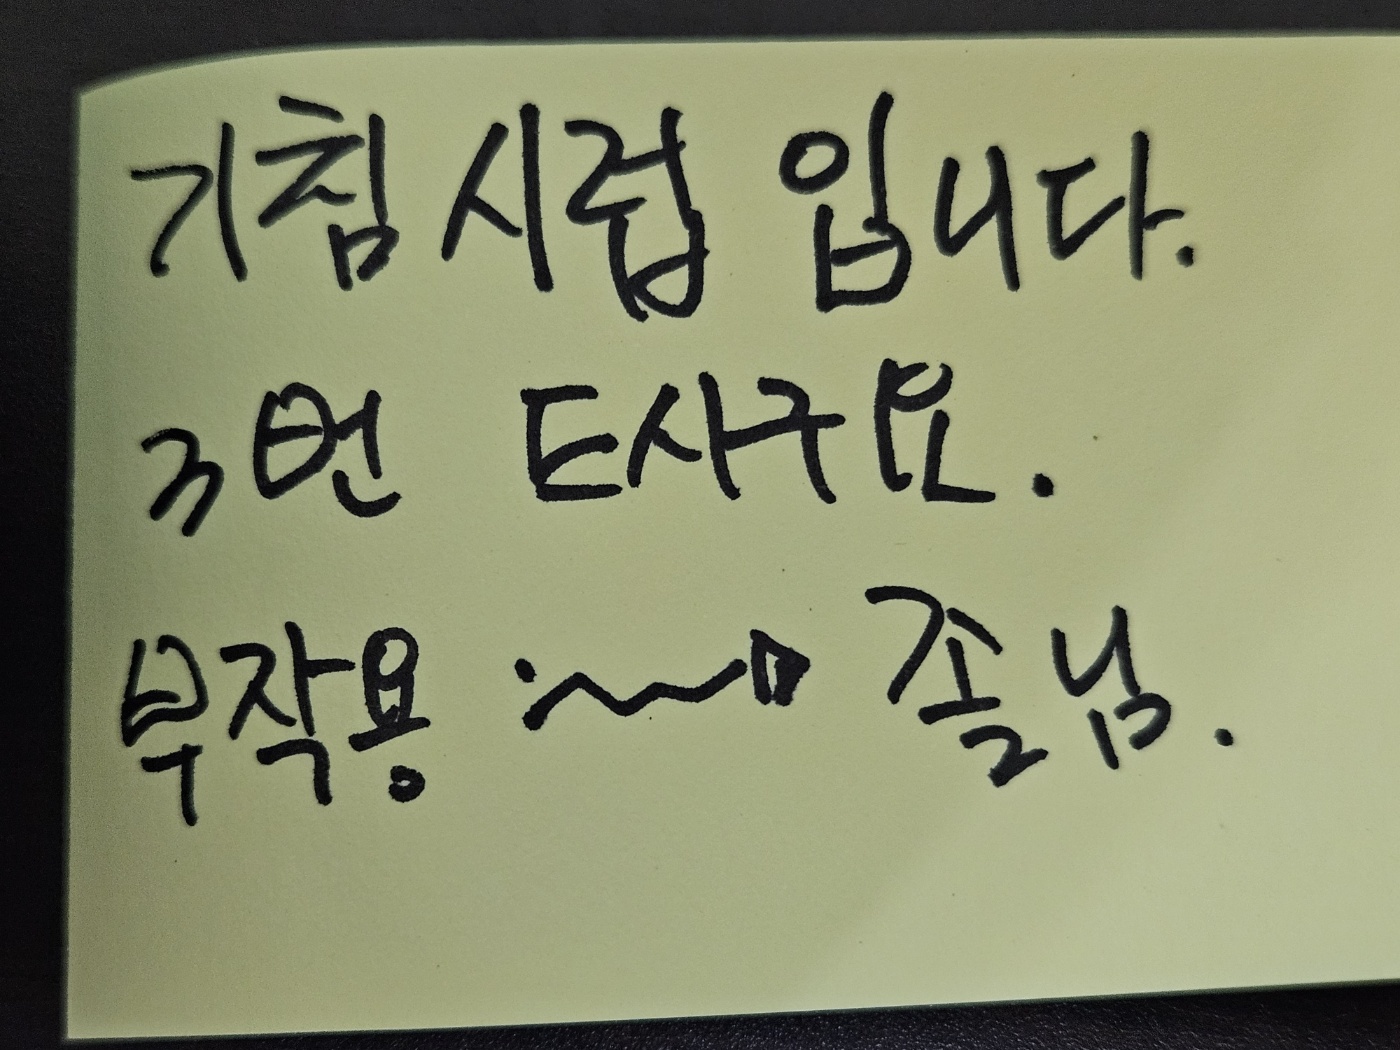 기침시럽 입니다.
3번 드시구요.
부작용 ~> 졸님.